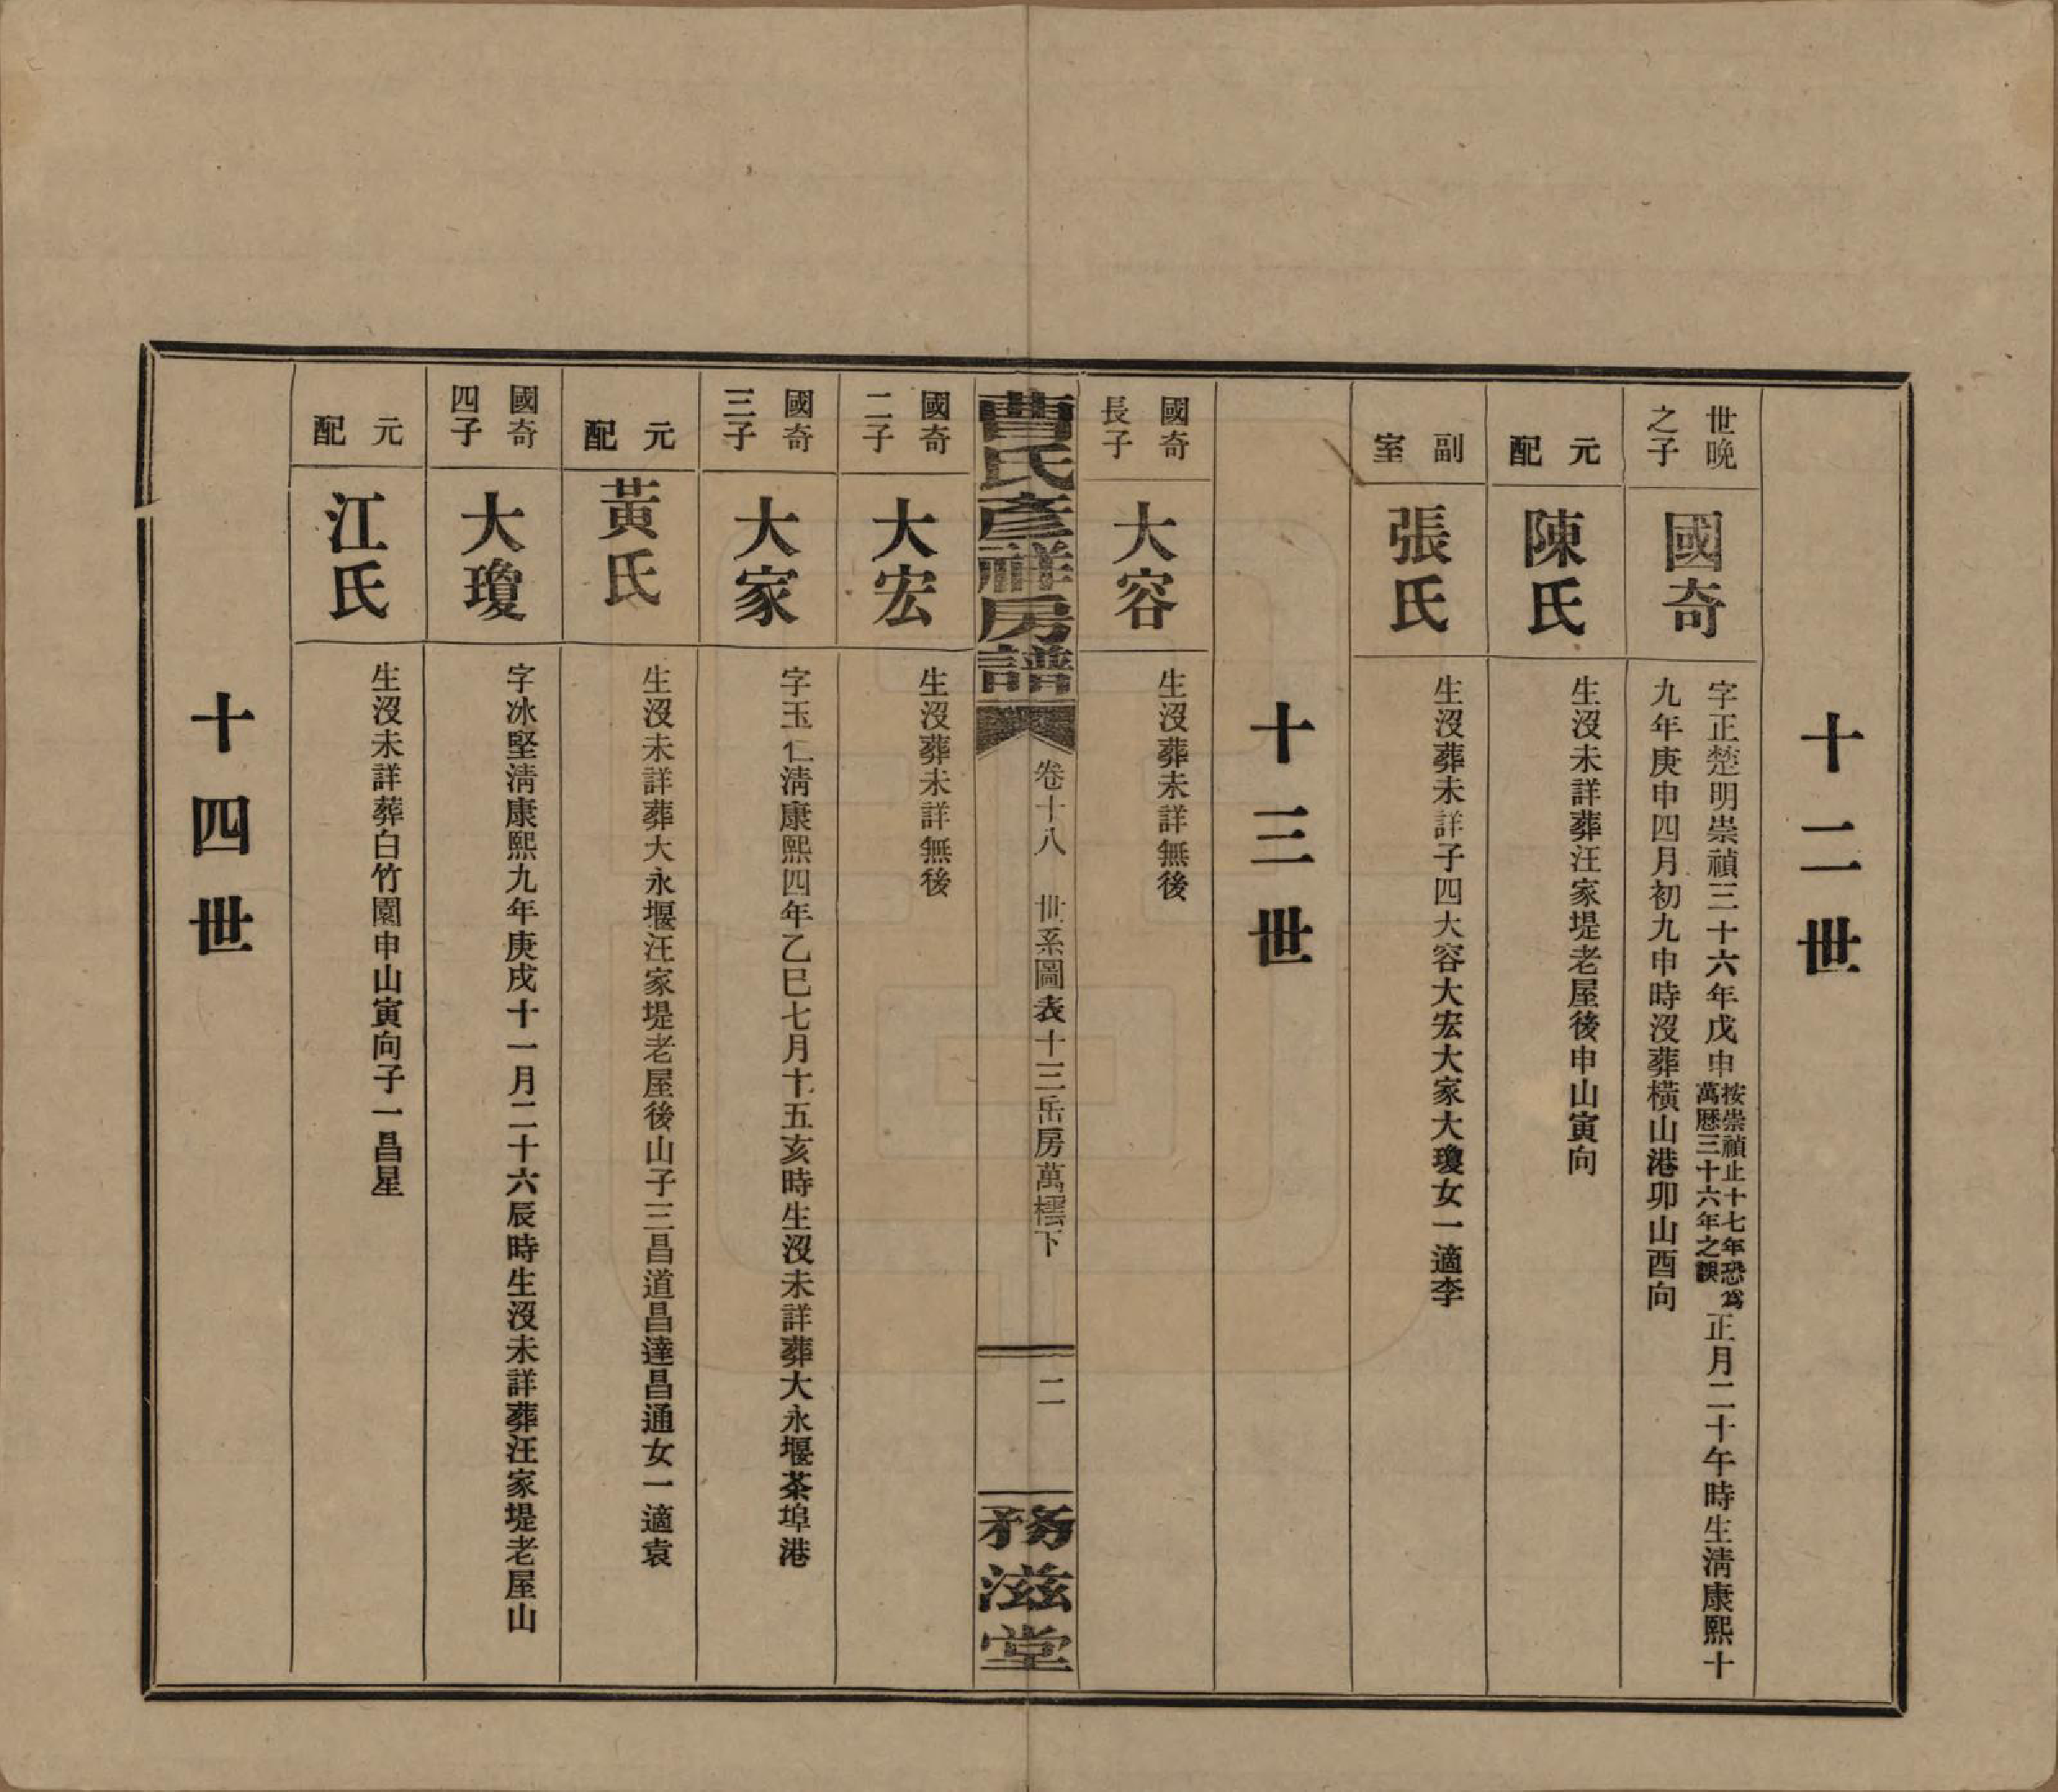 十二世
世晚之子
國奇
字正楚明崇禎三十六年戊申按崇禎止十七年恐爲萬歷三十六年之誤正月二十午時生清康熙十
九年庚申四月初九申時沒葬橫山港卯山酉向
元配
陳氏
生沒未詳葬汪家堤老屋後申山寅向
副室
張氏
生沒葬未詳子四大容大宏大家大瓊女一適李
十三世
國奇長子
大容
生沒葬未詳無後
曹氏彥祥房譜
卷十八 世系圖表十三岳房萬橒下
二
務滋堂
國奇二子
大宏
生沒葬未詳無後
國奇三子
大家
字玉仁清康熙四年乙巳七月十五亥時生沒未詳葬大永堰茶埠港
元配
黃氏
生沒未詳葬大永堰汪家堤老屋後山子三昌道昌達昌通女一適袁
國奇四子
大瓊
字冰堅清康熙九年庚戌十一月二十六辰時生沒未詳葬汪家堤老屋山
元配
江氏
生沒未詳葬白竹園申山寅向子一昌星
十四世